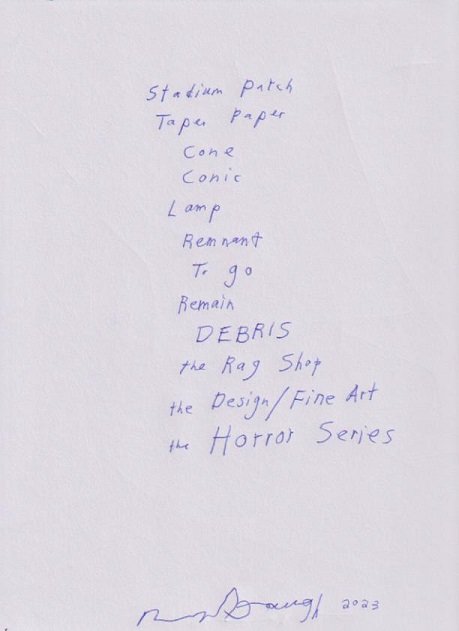 Stadium Patch
Taper Paper
Cone
Conic
Lamp
Remnant
To go
Remain
DEBRIS
the Rag Shop
the Design/Fine Art
the Horror Series
2023